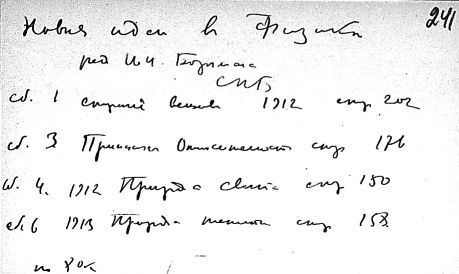 241
Новыя идеи в физике
ред И.И. Боргмана
СПБ
сб. 1 строение вещества 1912 стр 202
сб. 3 Принцип Относительности стр 176
сб. 4. 1912 Природа света стр 150
сб 6 1913 Природа теплоты стр 158
по 80к